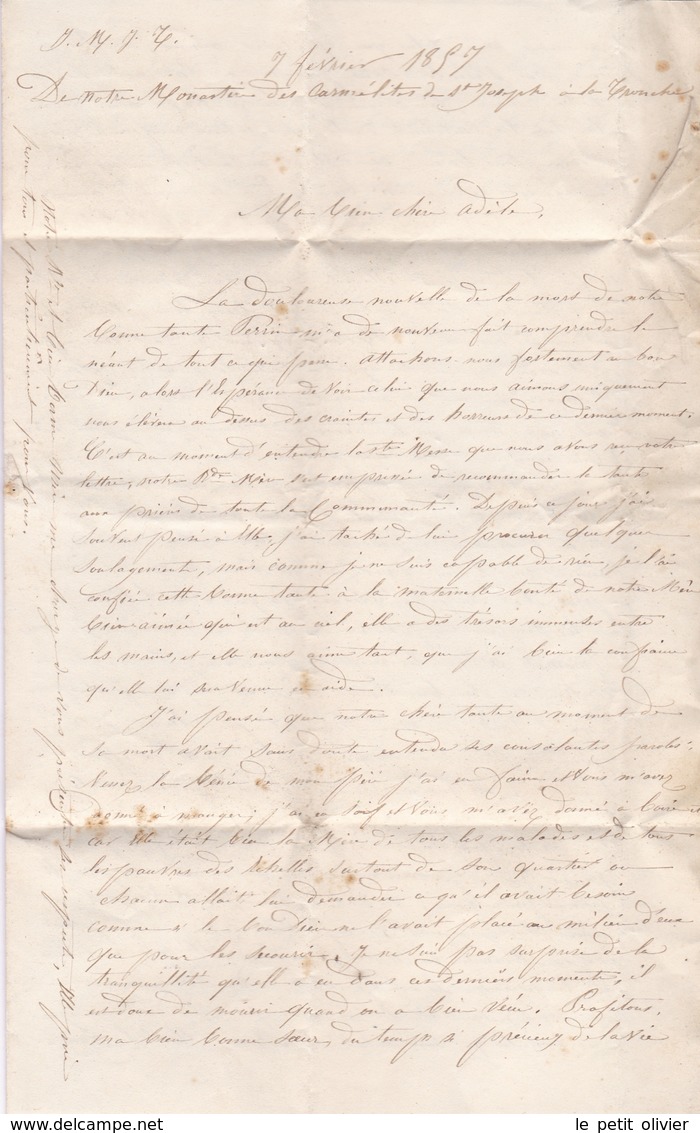 J. M. J. T.
7 février 1857
De notre Monastère des Carmélites de St Joseph à la Tronche
Ma bien chère Adèle,
La douloureuse nouvelle de la mort de notre
bonne tante Perrin m'a de nouveau fait comprendre le
néant de tout ce qui passe. Attachons-nous fortement au bon
Dieu, alors l'Espérance de voir celui que nous aimons uniquement
nous élèvera au dessus des craintes et des horreurs de ce dernier moment.
C'est au moment d'entendre la Ste Messe que nous avons reçu votre
lettre, notre Rde Mère s'est empressée de recommander la tante
aux prières de toute la Communauté. Depuis ce jour j'ai
souvent pensé à Elle, j'ai taché de lui procurer quelque
soulagement, mais comme je ne suis capable de rien, je l'ai
confiée cette bonne tante à la maternelle bonté de notre Mère
bien-aimée qui est au ciel, elle a des trésors immenses entre
les mains, et elle nous aime tant, que j'ai bien la confiance
qu'elle lui sera venue en aide.
J'ai pensé que notre chère tante au moment de
sa mort avait sans doute entendu ces consolantes paroles:
Venez la bénie de mon Père j'ai eu faim et vous m'avez
donné à manger; j'ai eu soif et vous m'avez donné à boire et
car Elle était bien la Mère de tous les malades et de tous
les pauvres des Echelles surtout de son quartier ou
chacun allait lui demander ce qu'il avait besoin
comme si le bon Dieu ne l'avait placé au milieu d'eux
que pour les secourir. Je ne suis pas surprise de la
tranquillité qu'elle a eu dans ces derniers moments, il
est doux de mourir quand on a bien vécu. Profitons,
ma bien bonne sœur, du temps si précieux de la vie
Notre Rde et bien bonne Mère me charge de vous présenter ses respects, Elle prie
pour tous et particulièrement pour vous.
le petit olivier
www.delcampe.net